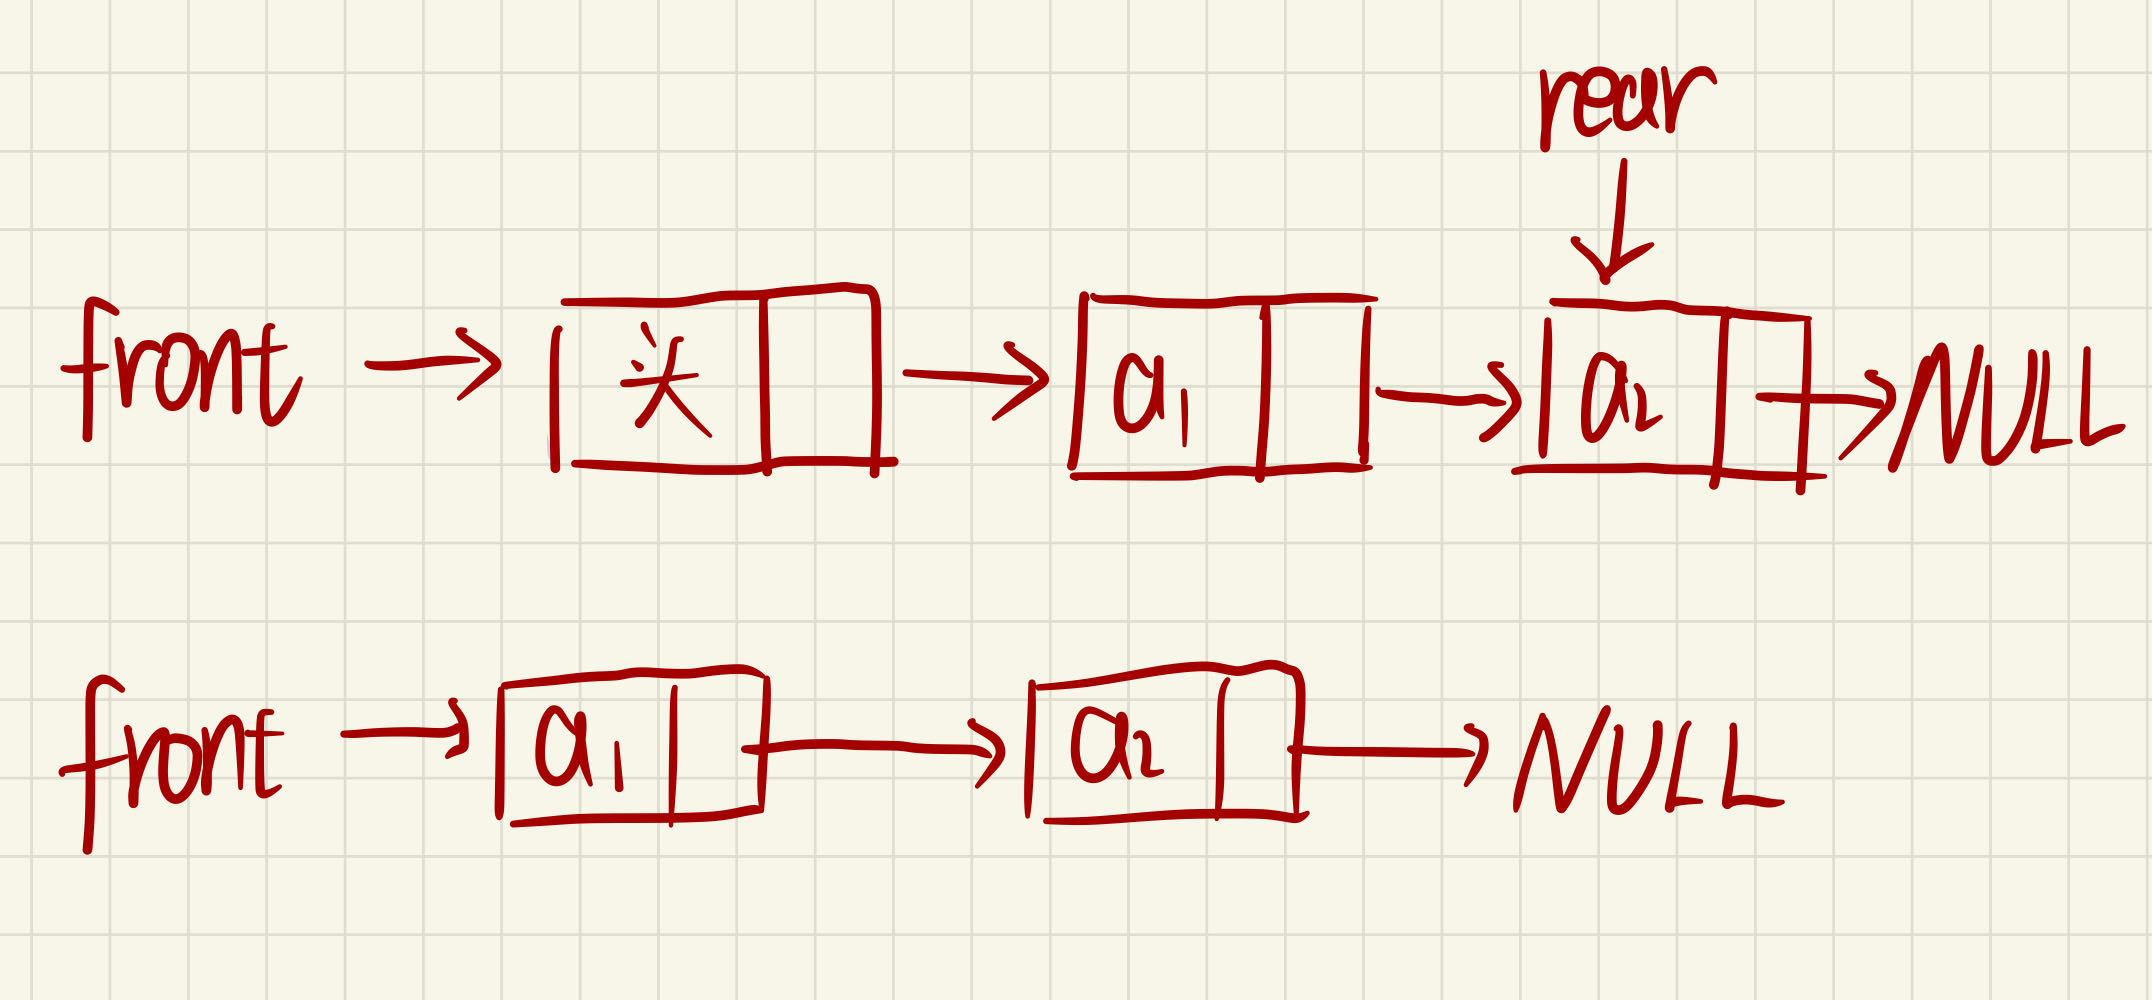 rear
front → 头 → a₁ → a₂ → NULL
front → a₁ → a₂ → NULL